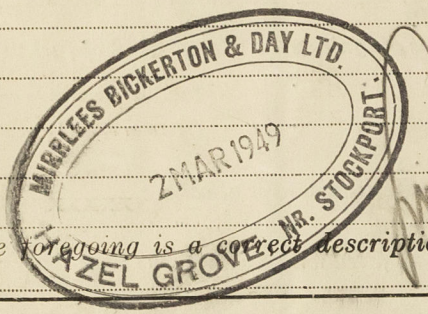 MIRRLEES BICKERTON & DAY LTD.
2 MAR 1949
HAZEL GROVE, NR. STOCKPORT.
foregoing is a correct